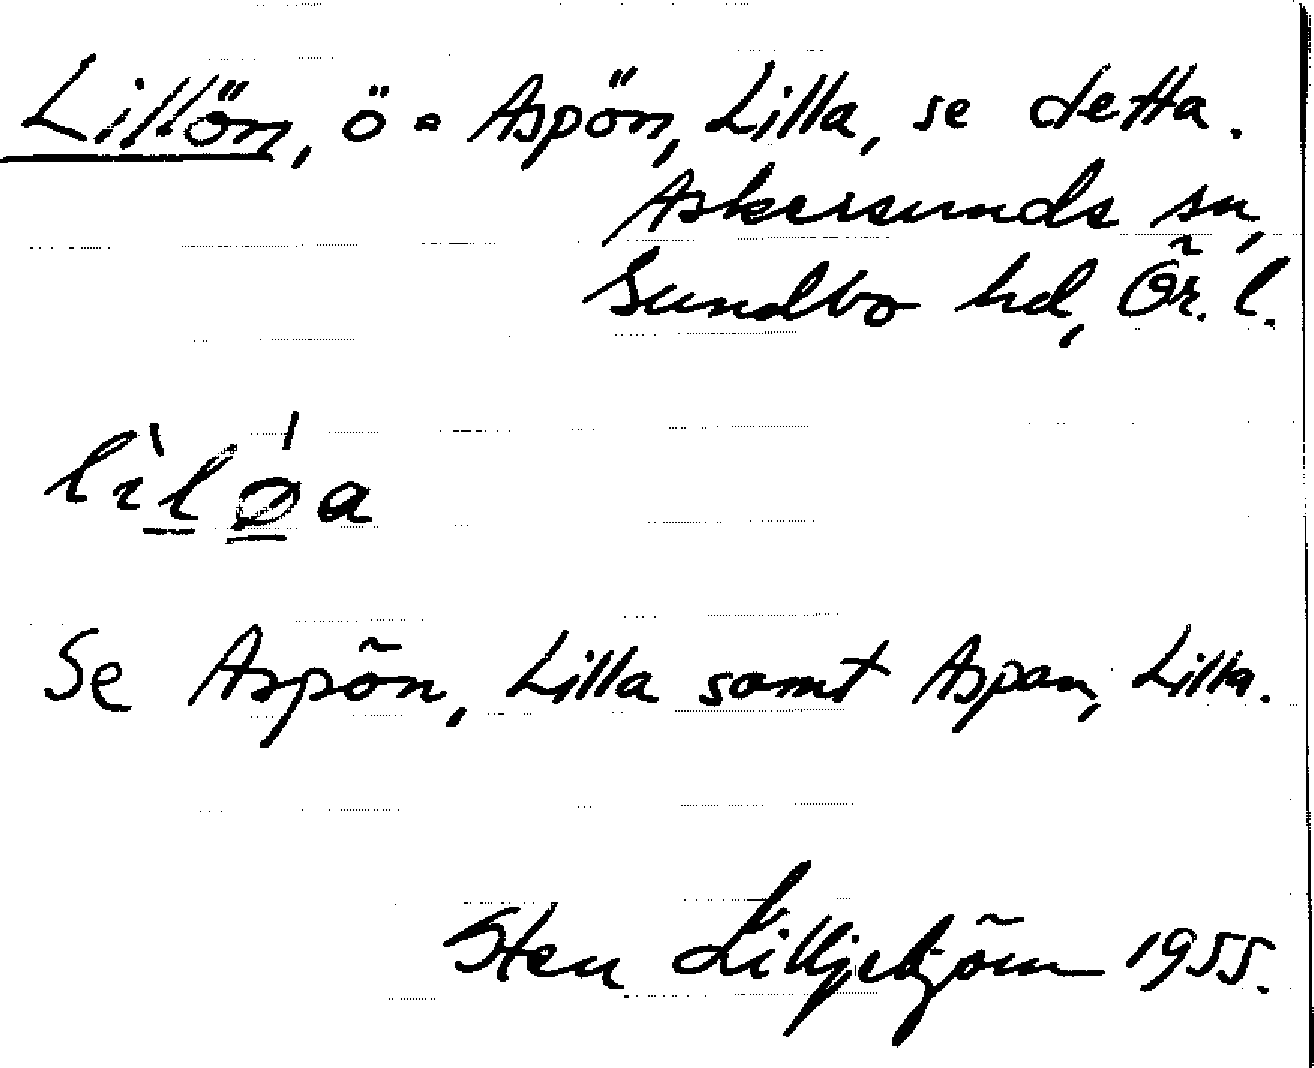 Lillön, ö = Aspön, Lilla, se detta.
Askersunds sn,
Sundbo hd, Ör. l.
Se Aspön, Lilla samt Aspan, Lilla.
Sten 1955.